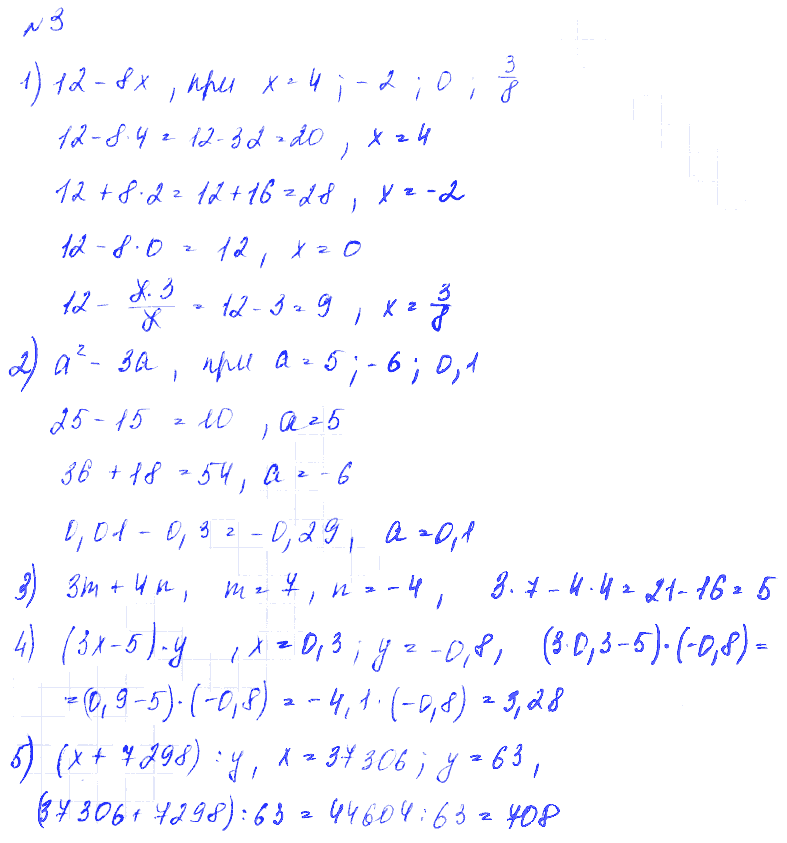 №3
1) 12 - 8x , при x = 4 ; - 2 ; 0 ; 3/8
12 - 8·4 = 12 - 32 = 20 , x = 4
12 + 8·2 = 12 + 16 = 28 , x = -2
12 - 8·0 = 12, x = 0
12 - 8·3/8 = 12 - 3 = 9 , x = 3/8
2) a² - 3a , при a = 5 ; - 6 ; 0,1
25 - 15 = 10 , a = 5
36 + 18 = 54, a = - 6
0,01 - 0,3 = - 0,29, a = 0,1
3) 3m + 4n, m = 7, n = -4 , 3·7 - 4·4 = 21 - 16 = 5
4) (3x - 5)·y , x = 0,3 ; y = -0,8, (3·0,3 - 5)·(-0,8) =
= (0,9 - 5)·(-0,8) = - 4,1·(-0,8) = 3,28
5) (x + 7298) : y, x = 37306 ; y = 63,
(37306 + 7298) : 63 = 44604 : 63 = 708